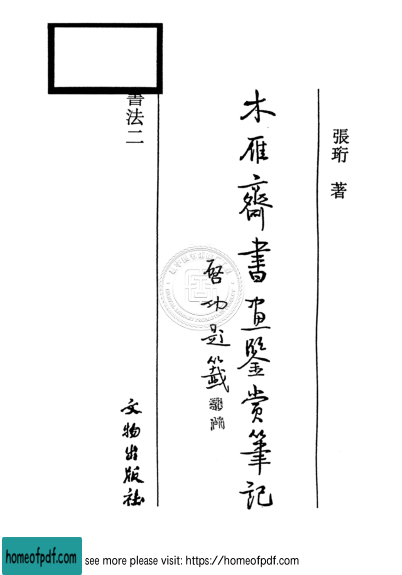 張珩 著
木雁齋書畫鑒賞筆記
啓功題籤
書法二
文物出版社
homeofpdf.com
see more please visit: https://homeofpdf.com